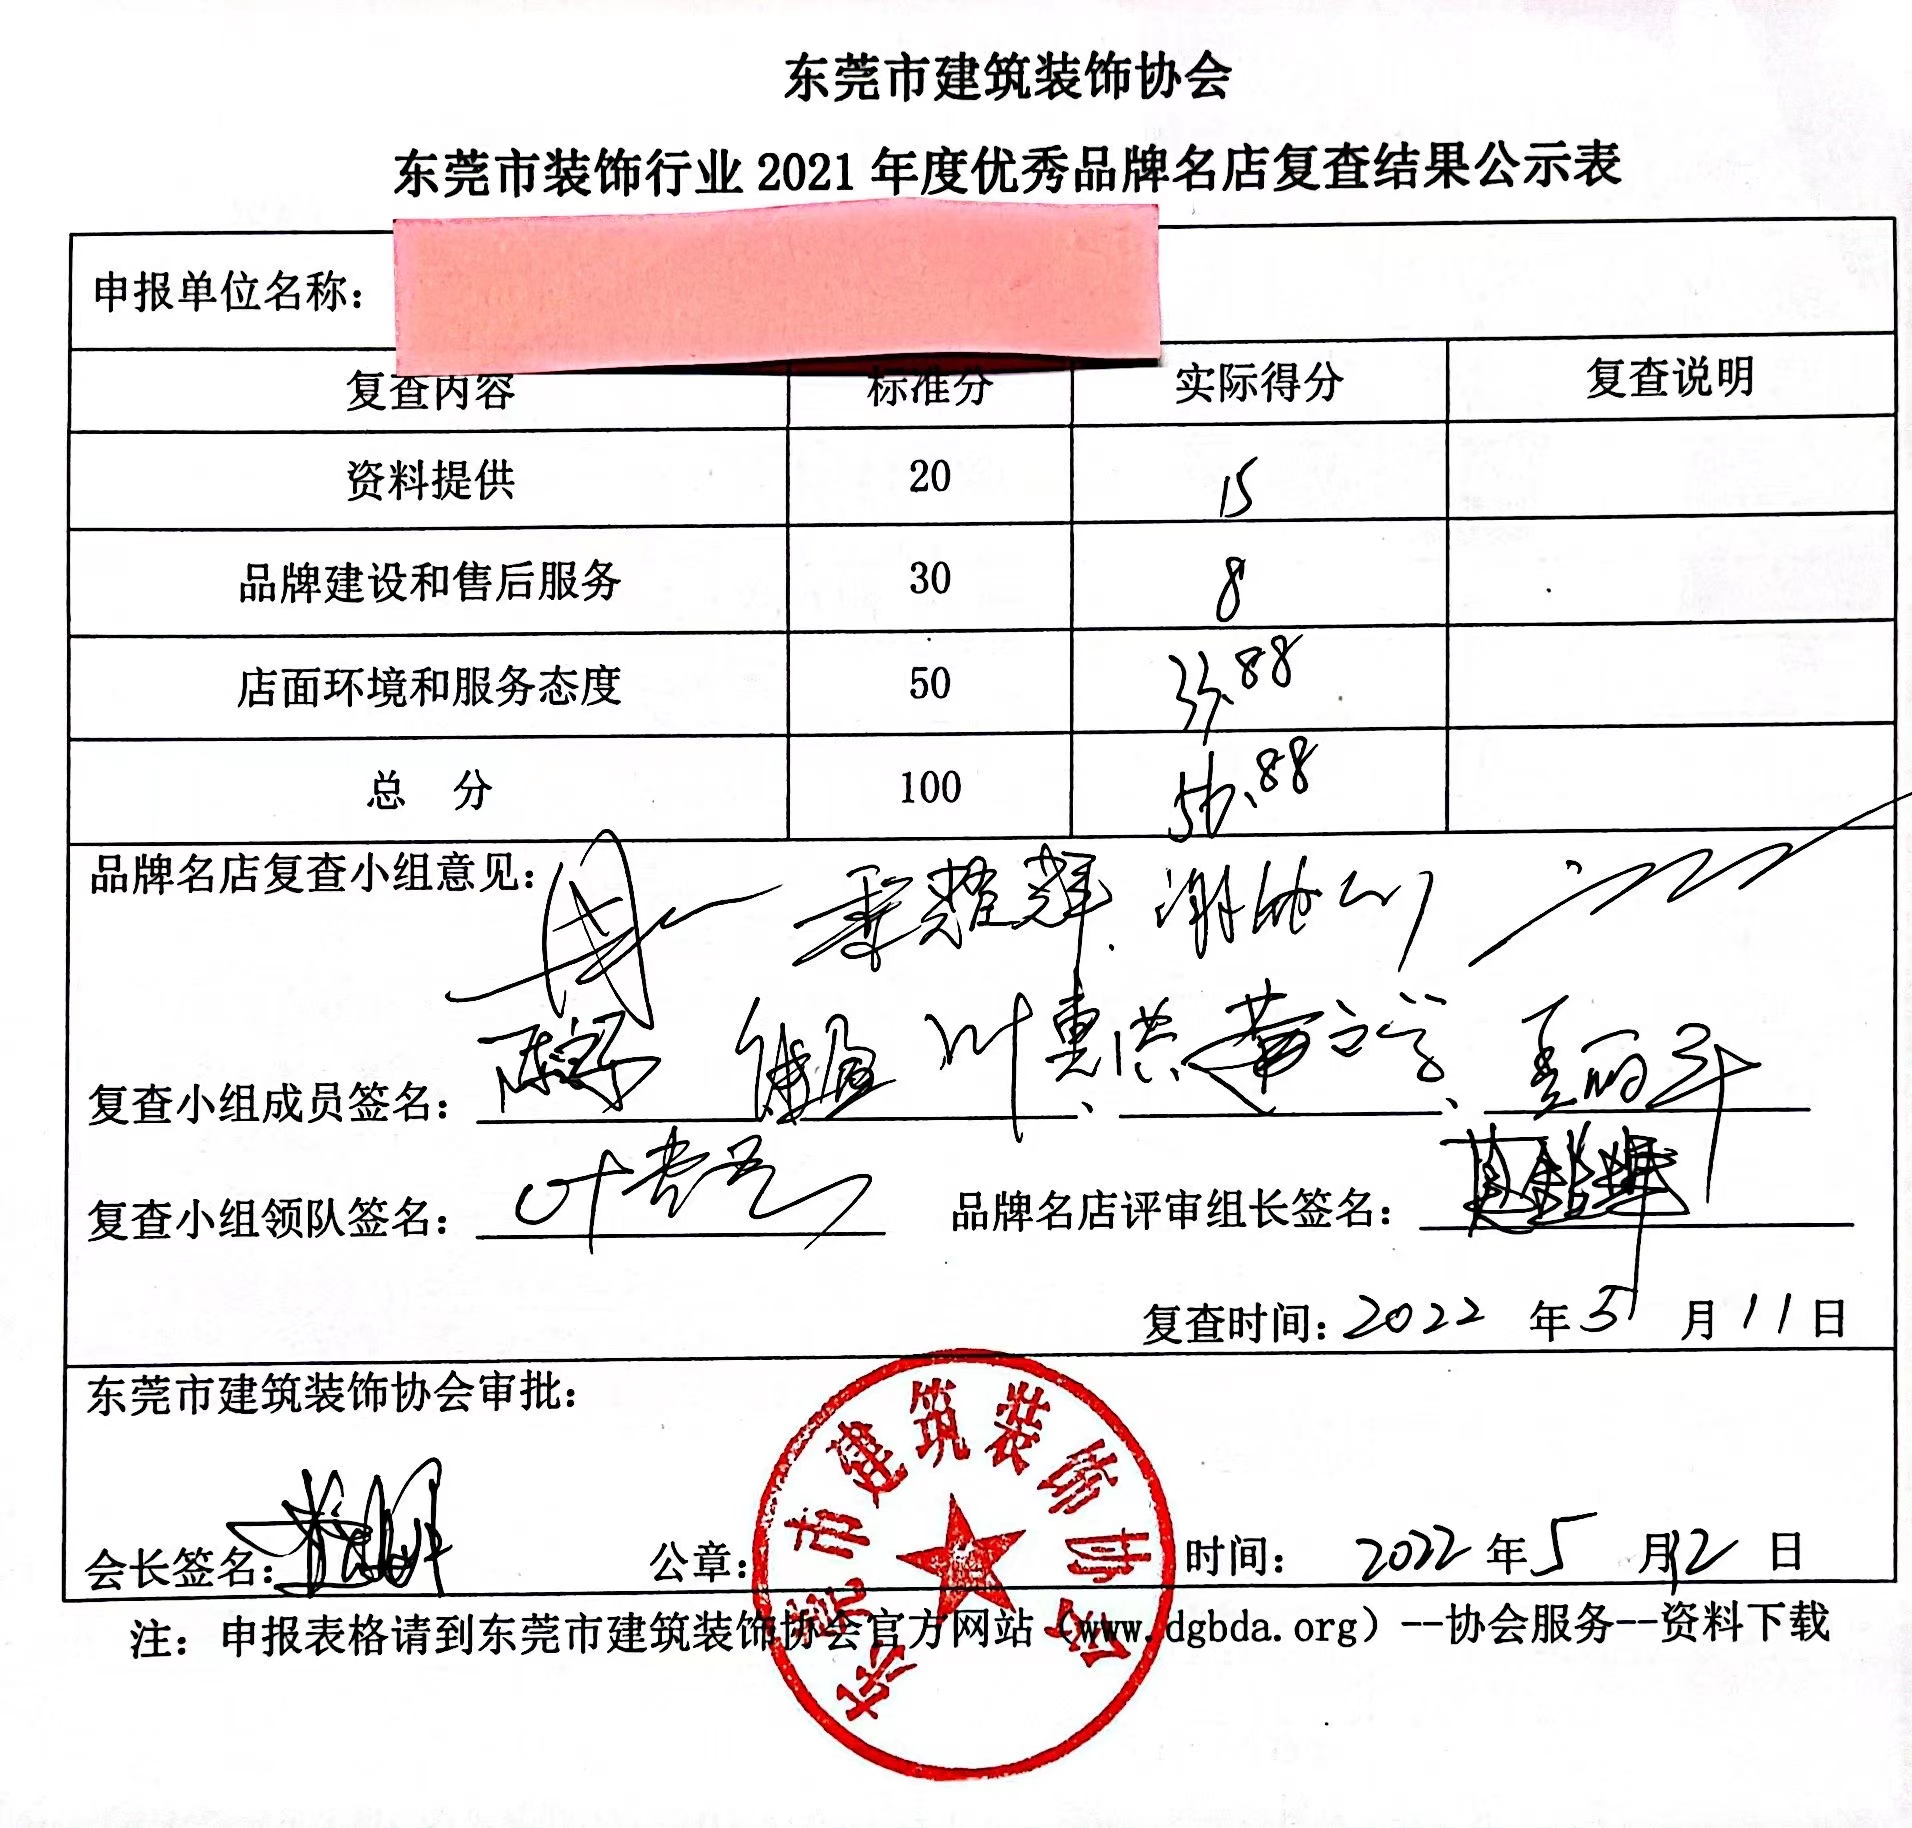 东莞市建筑装饰协会
东莞市装饰行业 2021 年度优秀品牌名店复查结果公示表
申报单位名称：
复查内容 标准分 实际得分 复查说明
资料提供 20 15
品牌建设和售后服务 30 8
店面环境和服务态度 50 33.88
总 分 100 56.88
品牌名店复查小组意见：
复查小组成员签名： 、 、
复查小组领队签名： 品牌名店评审组长签名：
复查时间：2022 年 5 月 11 日
东莞市建筑装饰协会审批：
东莞市建筑装饰协会
会长签名： 公章： 时间： 2022 年 5 月 12 日
注：申报表格请到东莞市建筑装饰协会官方网站（www.dgbda.org）--协会服务--资料下载